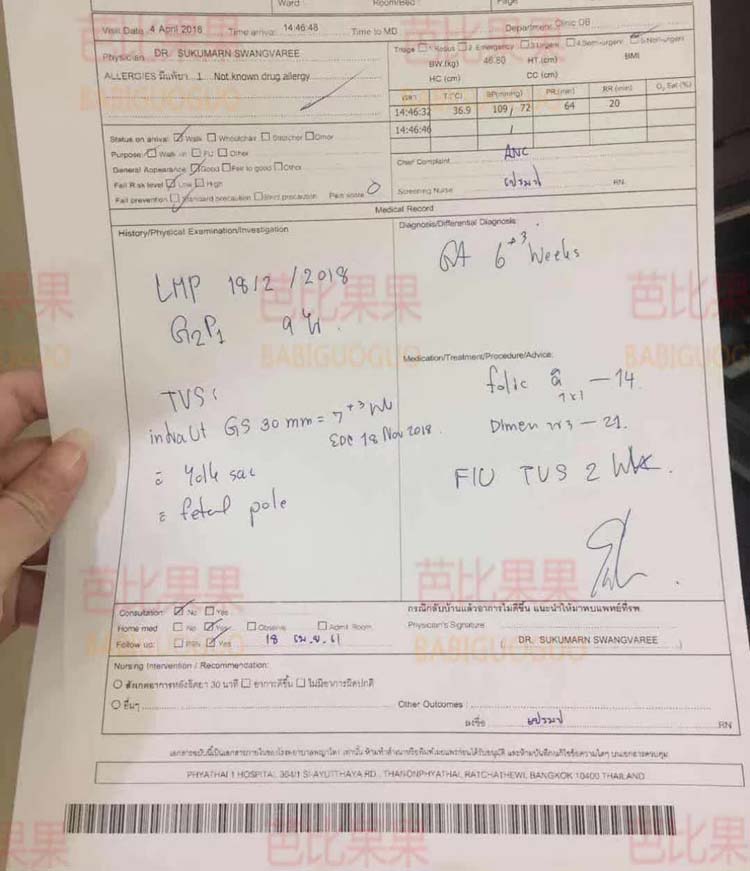 Ward
Room/Bed
Page
Visit Date 4 April 2018 Time arrival 14:46:48 Time to MD Department Clinic OB
Physician DR. SUKUMARN SWANGVAREE
ALLERGIES 1. Not known drug allergy
Triage 1.Resus 2.Emergency 3.Urgent 4.Semi-urgent 5.Non-urgent
BW.(kg) 46.80 HT.(cm) BMI
HC (cm) CC (cm)
เวลา T.(°C) BP(mmHg) PR(/min) RR (/min) O₂ Sat (%)
14:46:32 36.9 109 / 72 64 20
14:46:46 /
Status on arrival Walk Wheelchair Stretcher Other
Purpose Walk-in FU Other
General Appearance Good Fair to good Other
Fall Risk level Low High
Fall prevention Standard precaution Strict precaution Pain score 0
Chief Complaint ANC
Screening Nurse RN.
Medical Record
History/Physical Examination/Investigation
LMP 18/2/2018
G2P1
TVS:
GS 30 mm = 7+3 wk
EDC 18 Nov 2018
yolk sac
fetal pole
Diagnosis/Differential Diagnosis
GA 6+3 weeks
Medication/Treatment/Procedure/Advice:
folic 1x1 - 14
Dimen - 21.
F/U TVS 2 wk.
Consultation: No Yes
Home med No Yes Observe Admit Room
Follow up: PRN Yes 18 เม.ย. 61
กรณีกลับบ้านแล้วอาการไม่ดีขึ้น แนะนำให้มาพบแพทย์ที่รพ.
Physician's Signature
( DR. SUKUMARN SWANGVAREE )
Nursing Intervention / Recommendation:
สังเกตอาการหลังฉีดยา 30 นาที อาการดีขึ้น ไม่มีอาการผิดปกติ
อื่นๆ
Other Outcomes :
ลงชื่อ RN
PHYATHAI 1 HOSPITAL 364/1 SI-AYUTTHAYA RD., THANONPHYATHAI, RATCHATHEWI, BANGKOK 10400 THAILAND
芭比果果
BABIGUOGUO